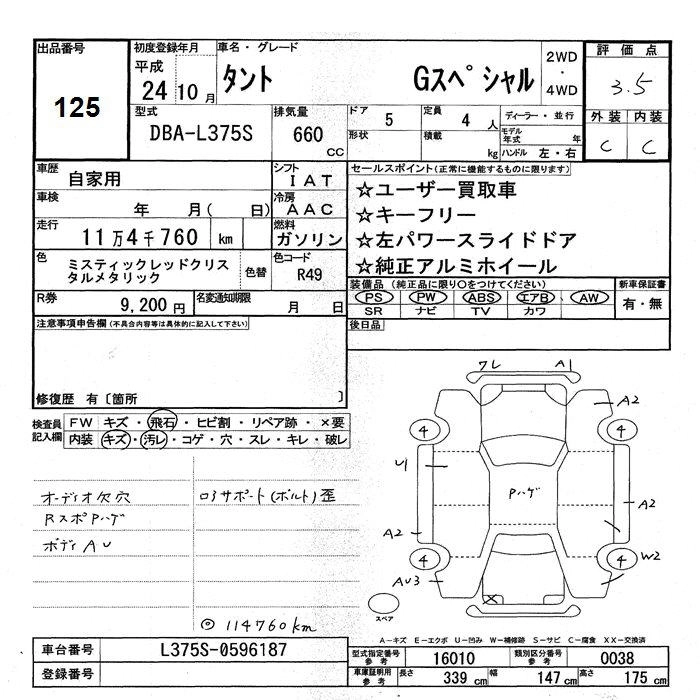 出品番号
125
初度登録年月
平成
24 10 月
車名・グレード
タント Gスペシャル
2WD
・
4WD
評価点
3.5
外装 内装
C C
型式
DBA-L375S
排気量
660
CC
ドア
5
定員
4 人
形状
積載
kg
ディーラー・並行
モデル年式 年
ハンドル 左・右
車歴
自家用
シフト
IAT
車検
年 月( 日)
冷房
AAC
走行
11万4千760 km
燃料
ガソリン
色
ミスティックレッドクリス
タルメタリック
色替
色コード
R49
R券
9,200 円
名変通知期限
月 日
セールスポイント(正常に機能するものに限ります)
☆ユーザー買取車
☆キーフリー
☆左パワースライドドア
☆純正アルミホイール
装備品 (純正品に限り○をつけてください)
PS PW ABS エアB AW
SR ナビ TV カワ
新車保証書
有・無
後日品
注意事項申告欄(不具合内容等は具体的に記入して下さい)
修復歴 有〔箇所 〕
検査員
記入欄
FW キズ・飛石・ヒビ割・リペア跡・×要
内装 キズ・汚レ・コゲ・穴・スレ・キレ・破レ
オーディオ欠穴
RスポPハゲ
ボディAU
ロアサポート(ボルト)歪
◎ 114760km
ワレ A1
A2
4 4
U1
Pハゲ
A2
A2
4 4
W2
AU3
×
スペア
A-キズ E-エクボ U-凹み W-補修跡 S-サビ C-腐食 XX-交換済
車台番号
L375S-0596187
登録番号
型式指定番号
参考
16010
類別区分番号
参考
0038
車庫証明用
参考
長さ
339 cm
幅
147 cm
高さ
175 cm